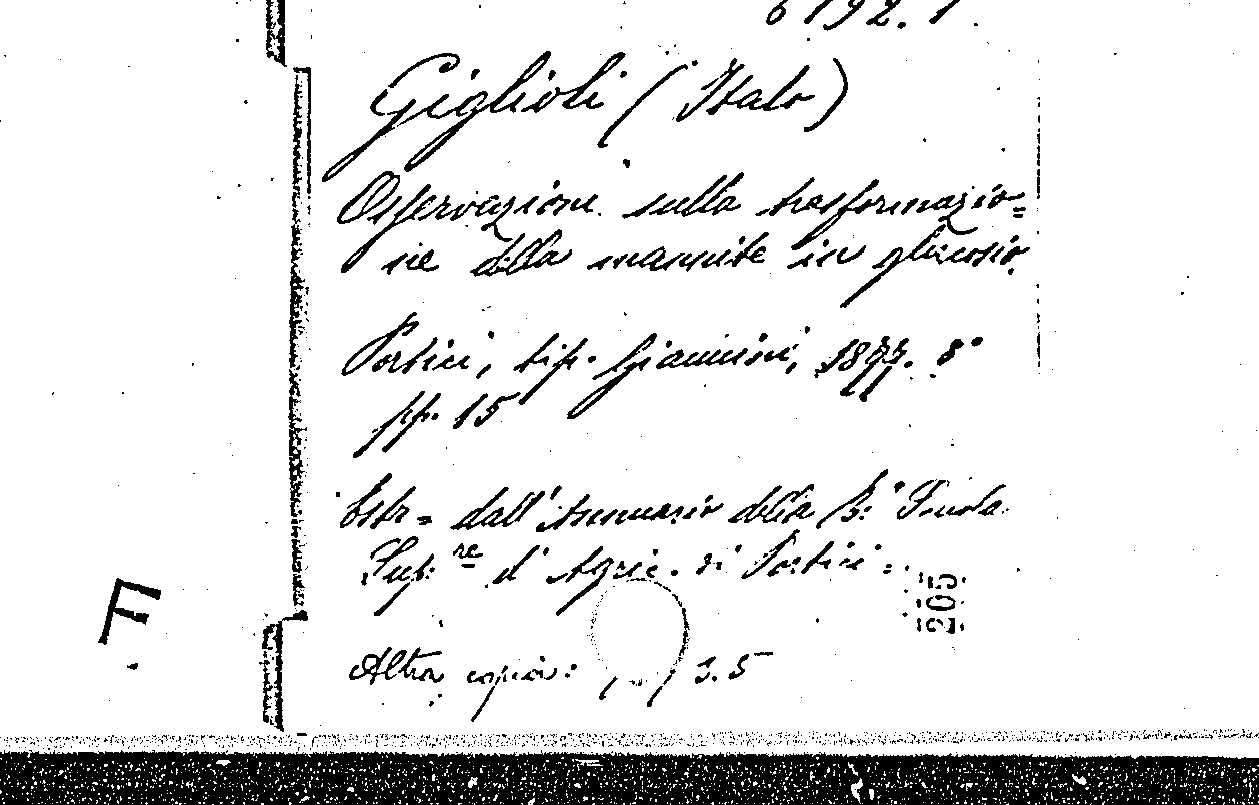 6192.1.
Giglioli (Italo)
Osservazioni sulla trasformazio=
ne della mannite in glucosio.
Portici, tip. Giannini, 1877. 8°
pp. 15
Estr= dall'Annuario della R.ª Scuola
Sup.re d'Agric. di Portici.
205
F
Altra copia: 3.5